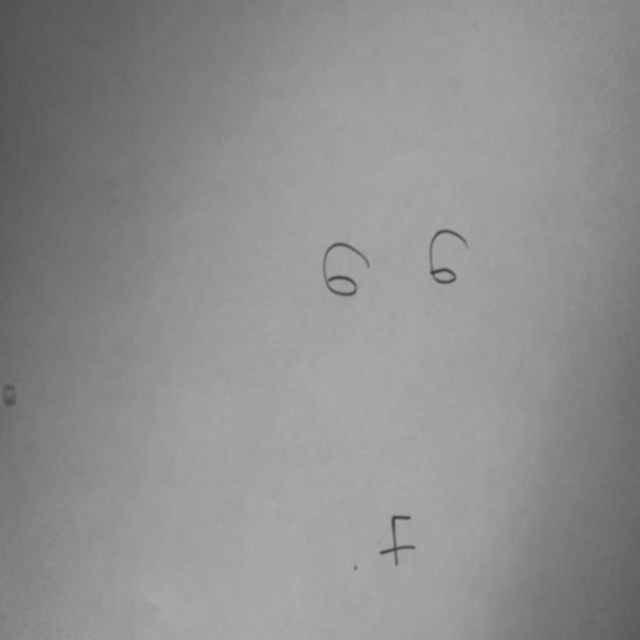 6 6
F